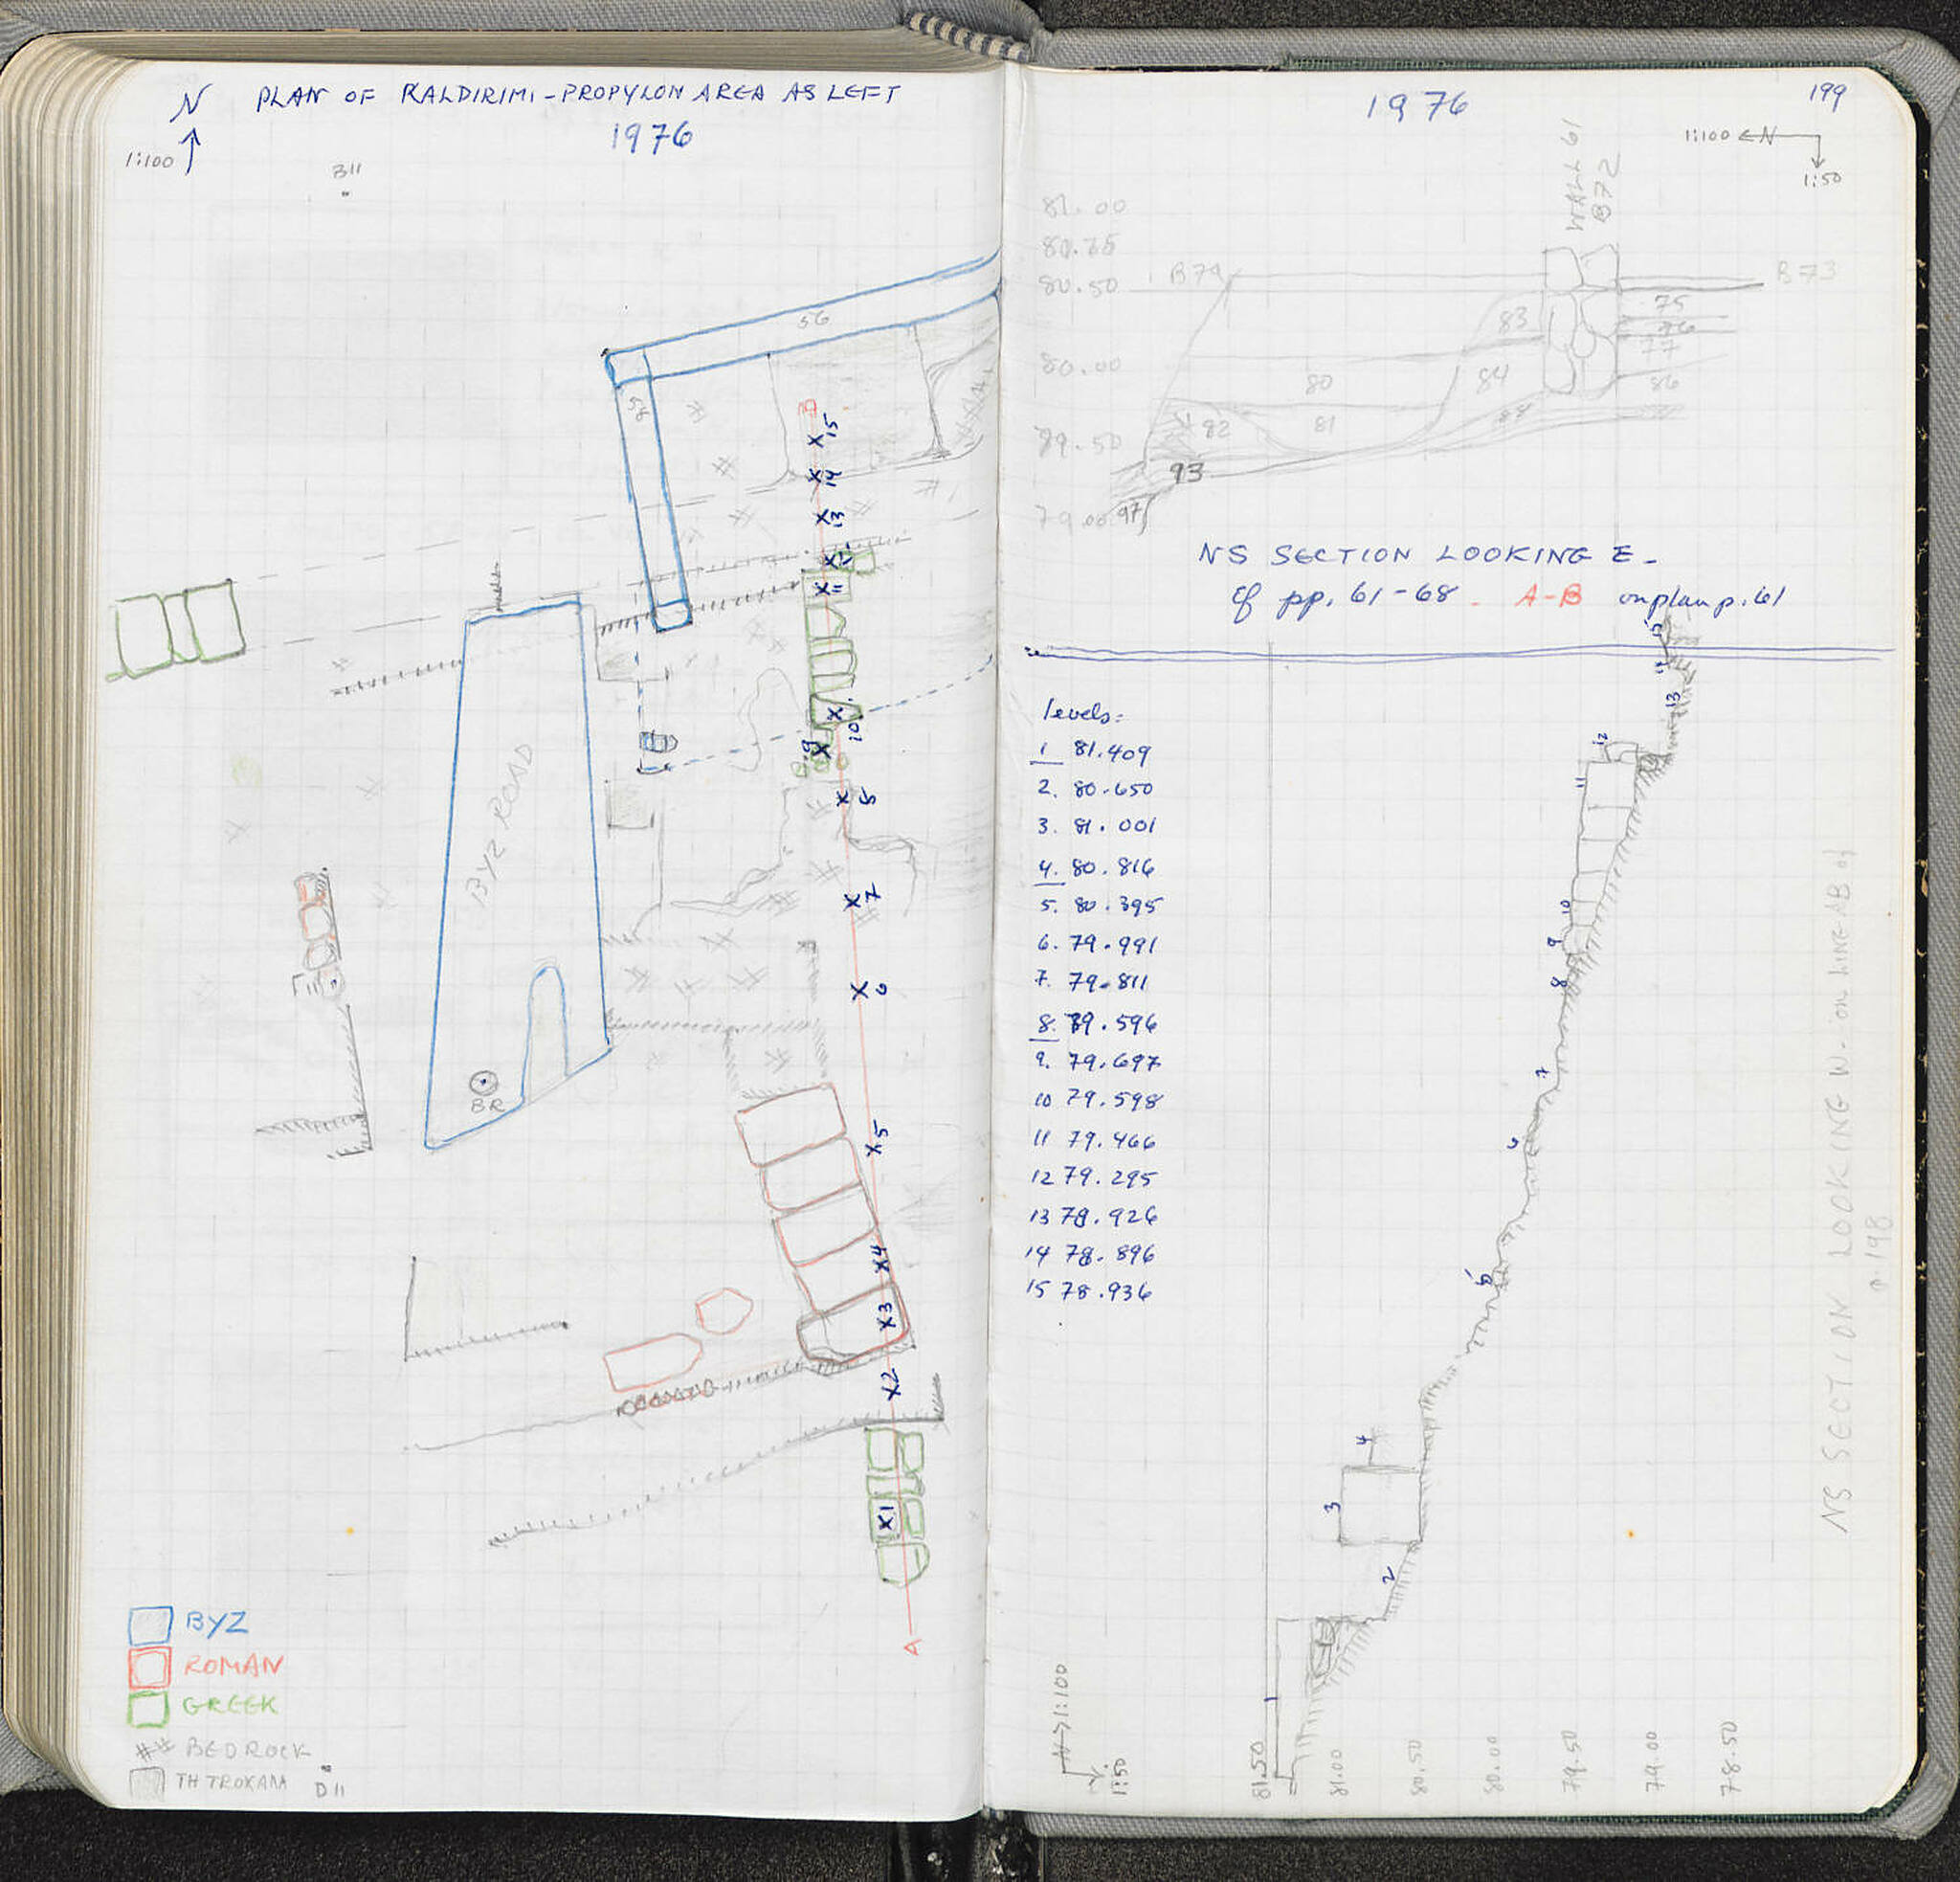 N PLAN OF KALDIRIMI-PROPYLON AREA AS LEFT
1976
1:100
B11
56
56
B
X 15
X 14
X 13
X 12
X 11
X 10
X 9
X 8
X 7
X 6
X 5
X 4
X 3
X 2
X 1
A
BYZ ROAD
BR
BYZ
ROMAN
GREEK
BEDROCK
D11
1976
199
1:100 ← N
1:50
WALL 61
B72
81.00
80.75
80.50
80.00
79.50
79.00
B79
B73
83
75
76
77
80
84
86
82
81
93
97
NS SECTION LOOKING E-
Cf pp. 61-68 - A-B on plan p. 61
levels:
1 81.409
2. 80.650
3. 81.001
4. 80.816
5. 80.395
6. 79.991
7. 79.811
8. 79.596
9. 79.697
10 79.598
11 79.466
12 79.295
13 78.926
14 78.896
15 78.936
15
14
13
12
11
10
9
8
7
6
5
4
3
2
1
NS SECTION LOOKING W- ON LINE AB of
p. 198
N → 1:100
1:50
81.50
81.00
80.50
80.00
79.50
79.00
78.50